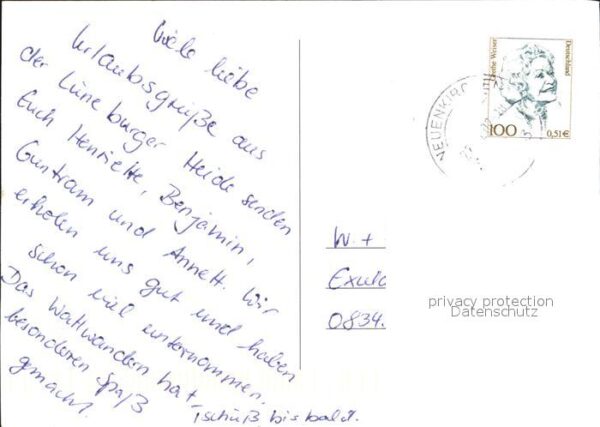 Viele liebe
Urlaubsgrüße aus
der Lüneburger Heide senden
Euch Henriette, Benjamin,
Guntram und Annett. Wir
erholen uns gut und haben
schon viel unternommen.
Das Wattwandern hat
besonderen Spaß
gemacht.
Tschüß, bis bald.
Grethe Weiser
Deutschland
100
0,51€
NEUENKIRC
W. +
0834.
privacy protection
Datenschutz